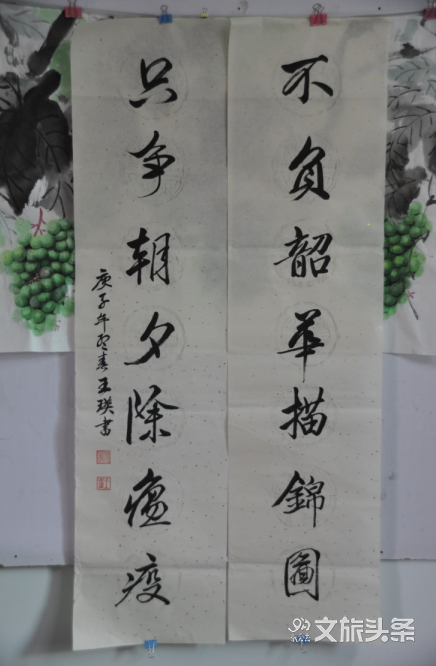 不負韶華描錦圖
只争朝夕除瘟疫
庚子年春王瑛書
文旅头条